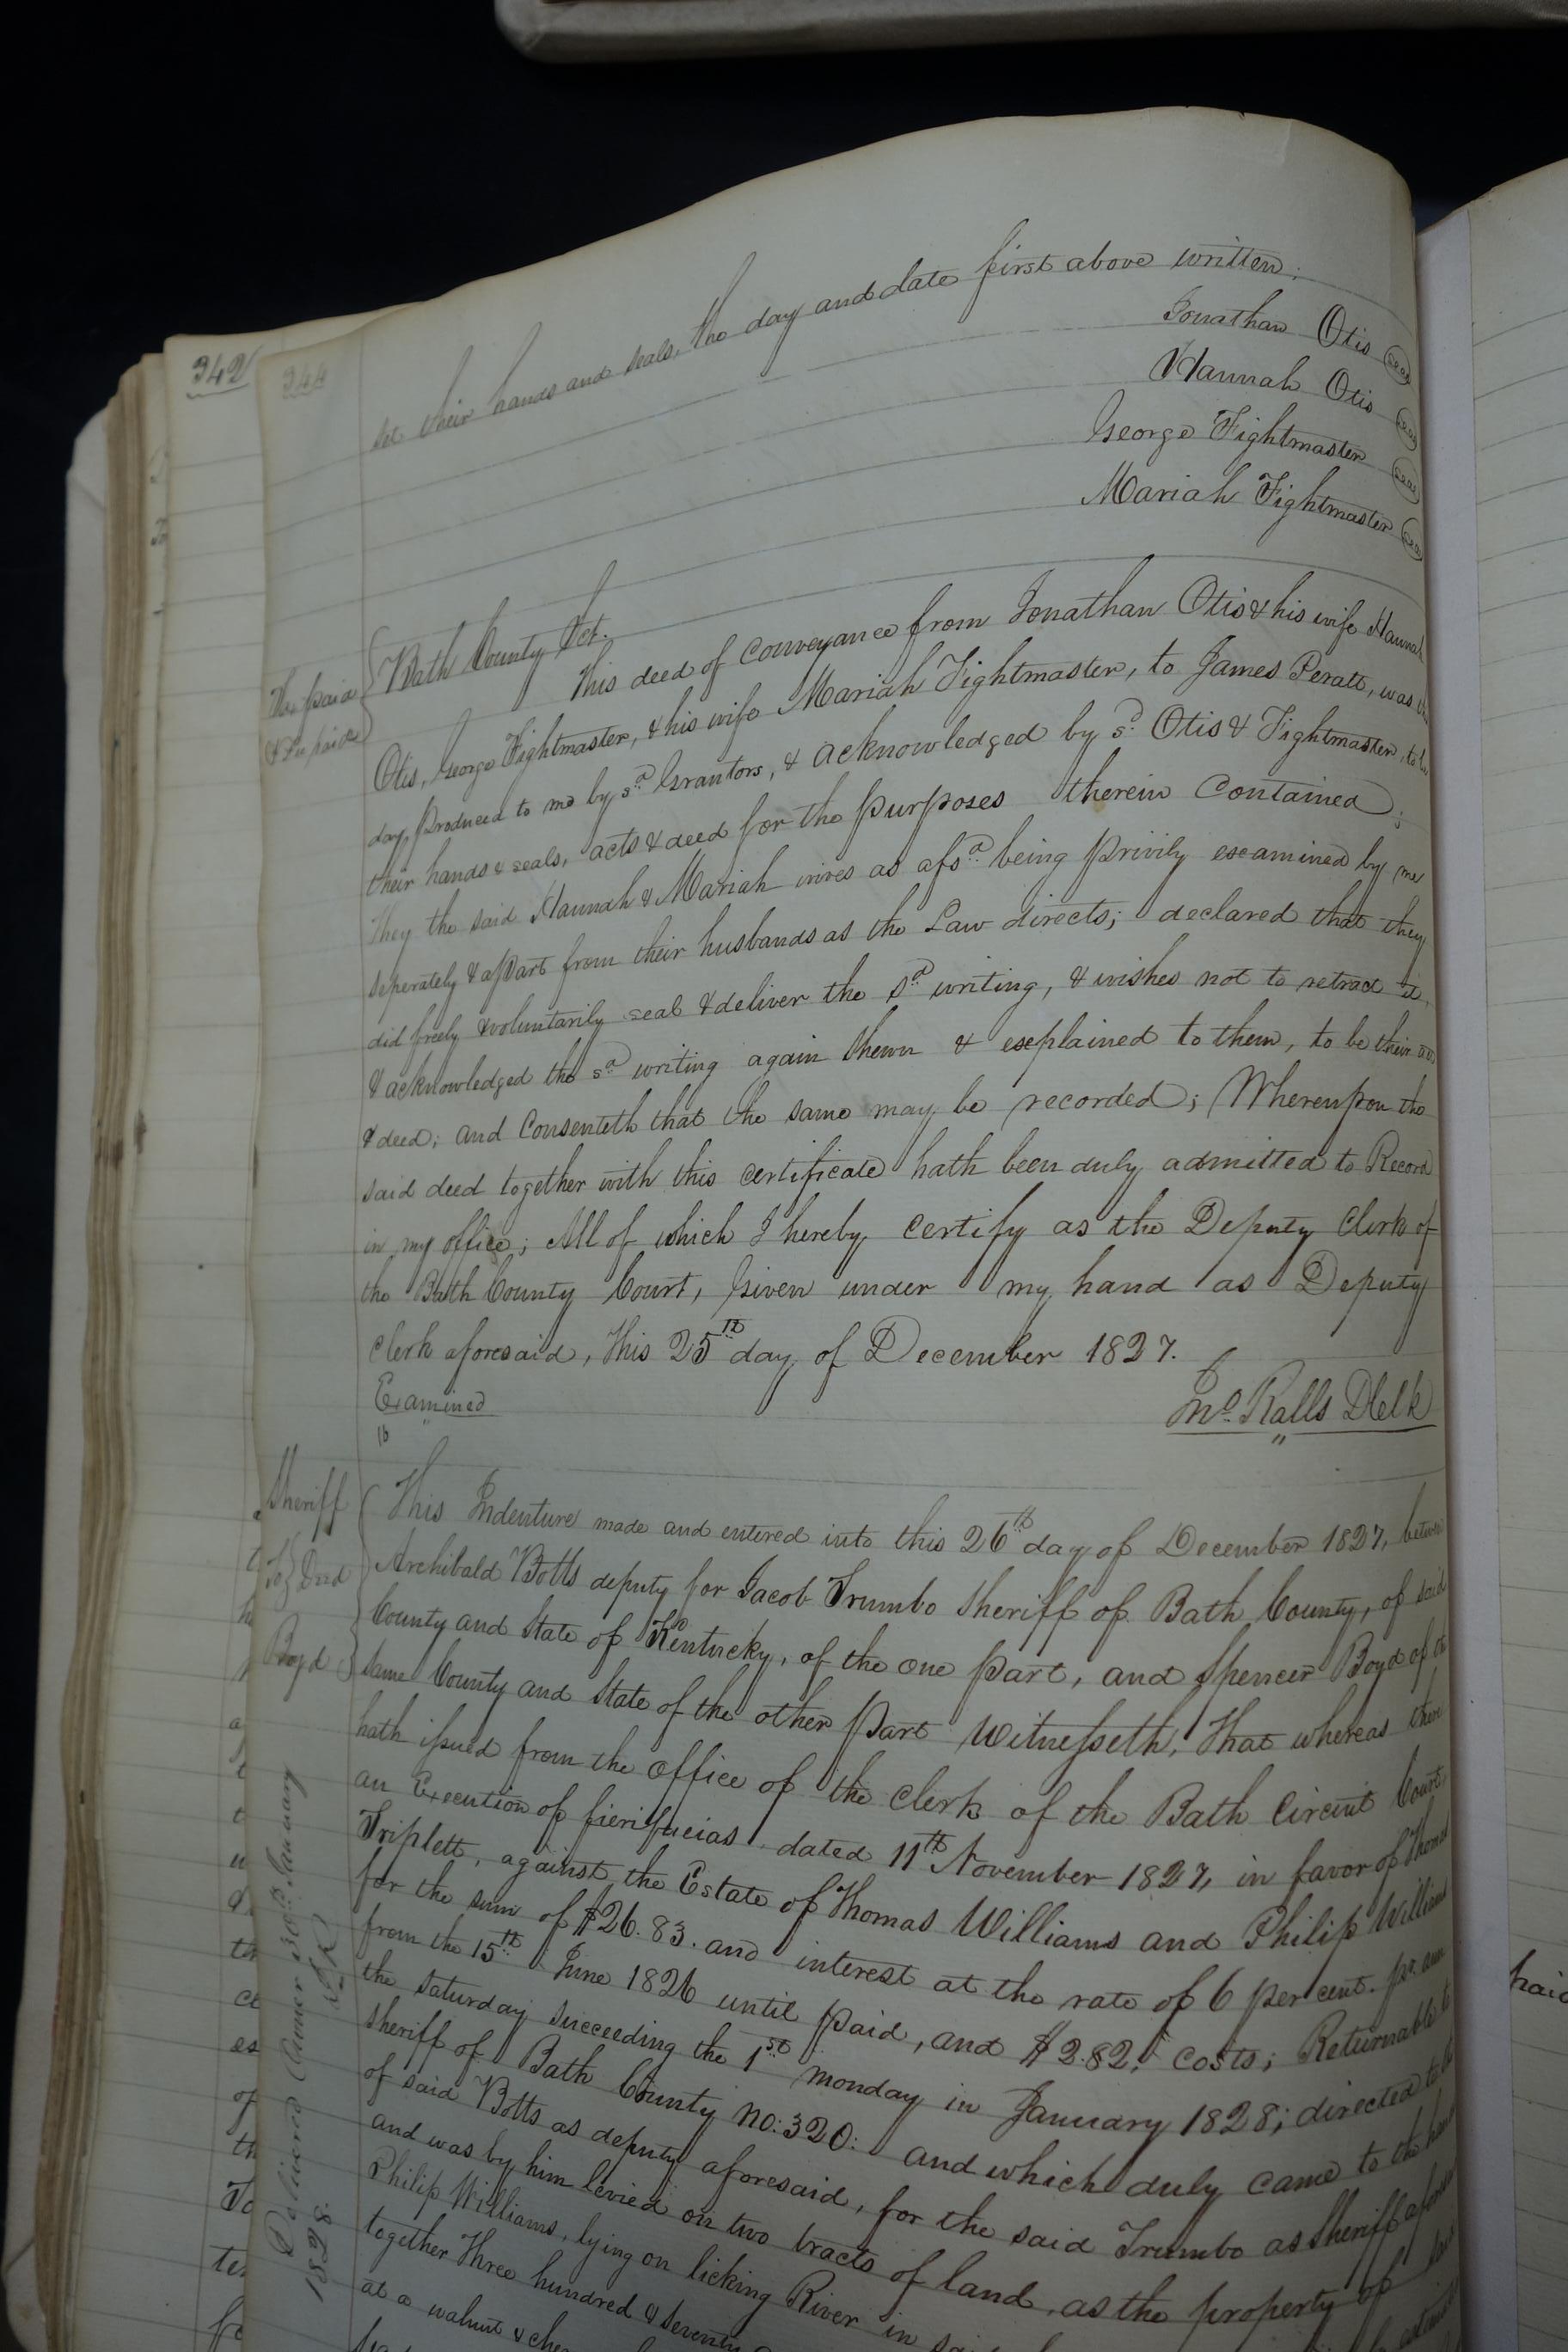 342
344
set their hands and seals, the day and date first above written.
Jonathan Otis seal
Hannah Otis seal
George Fightmaster seal
Mariah Fightmaster seal
Bath County Sct.
This deed of conveyance from Jonathan Otis & his wife Hannah
Otis, George Fightmaster, & his wife Mariah Fightmaster, to James Peratt, was this
day, produced to me by sd Grantors, & acknowledged by sd Otis & Fightmaster, to be
their hands & seals, acts & deed for the purposes therein contained;
They the said Hannah & Mariah wives as afsd being privily examined by me
seperately & apart from their husbands as the Law directs; declared that they
did freely & voluntarily seal & deliver the sd writing, & wishes not to retract it,
& acknowledged the sd writing again shewn & explained to them, to be their act
& deed; and Consenteth that the same may be recorded; Whereupon the
said deed together with this certificate hath been duly admitted to Record
in my office; All of which I hereby certify as the Deputy Clerk of
the Bath County Court, Given under my hand as Deputy
Clerk aforesaid, this 25th day of December 1827.
Examined
Jno. Ralls DClk
Sheriff
To } Deed
Boyd
This Indenture made and entered into this 26th day of December 1827, between
Archibald Botts deputy for Jacob Trumbo Sheriff of Bath County, of said
County and State of Kentucky, of the one part, and Spencer Boyd of the
same County and State of the other part Witnesseth, That whereas there
hath issued from the office of the clerk of the Bath Circuit Court,
an Execution of fierifacias dated 11th November 1827, in favor of Thomas
Triplett, against the Estate of Thomas Williams and Philip Williams
for the sum of $26.83. and interest at the rate of 6 per cent. pr. ann
from the 15th June 1826 until paid, and $2.82, costs; Returnable to
the saturday succeeding the 1st monday in January 1828; directed to the
sheriff of Bath County no: 320: and which duly came to the hand
of said Botts as deputy aforesaid, for the said Trumbo as Sheriff aforesaid
and was by him levied on two tracts of land, as the property of said
Philip Williams, lying on licking River in
together Three hundred & seventy
at a walnut &
Delivered January
1828.